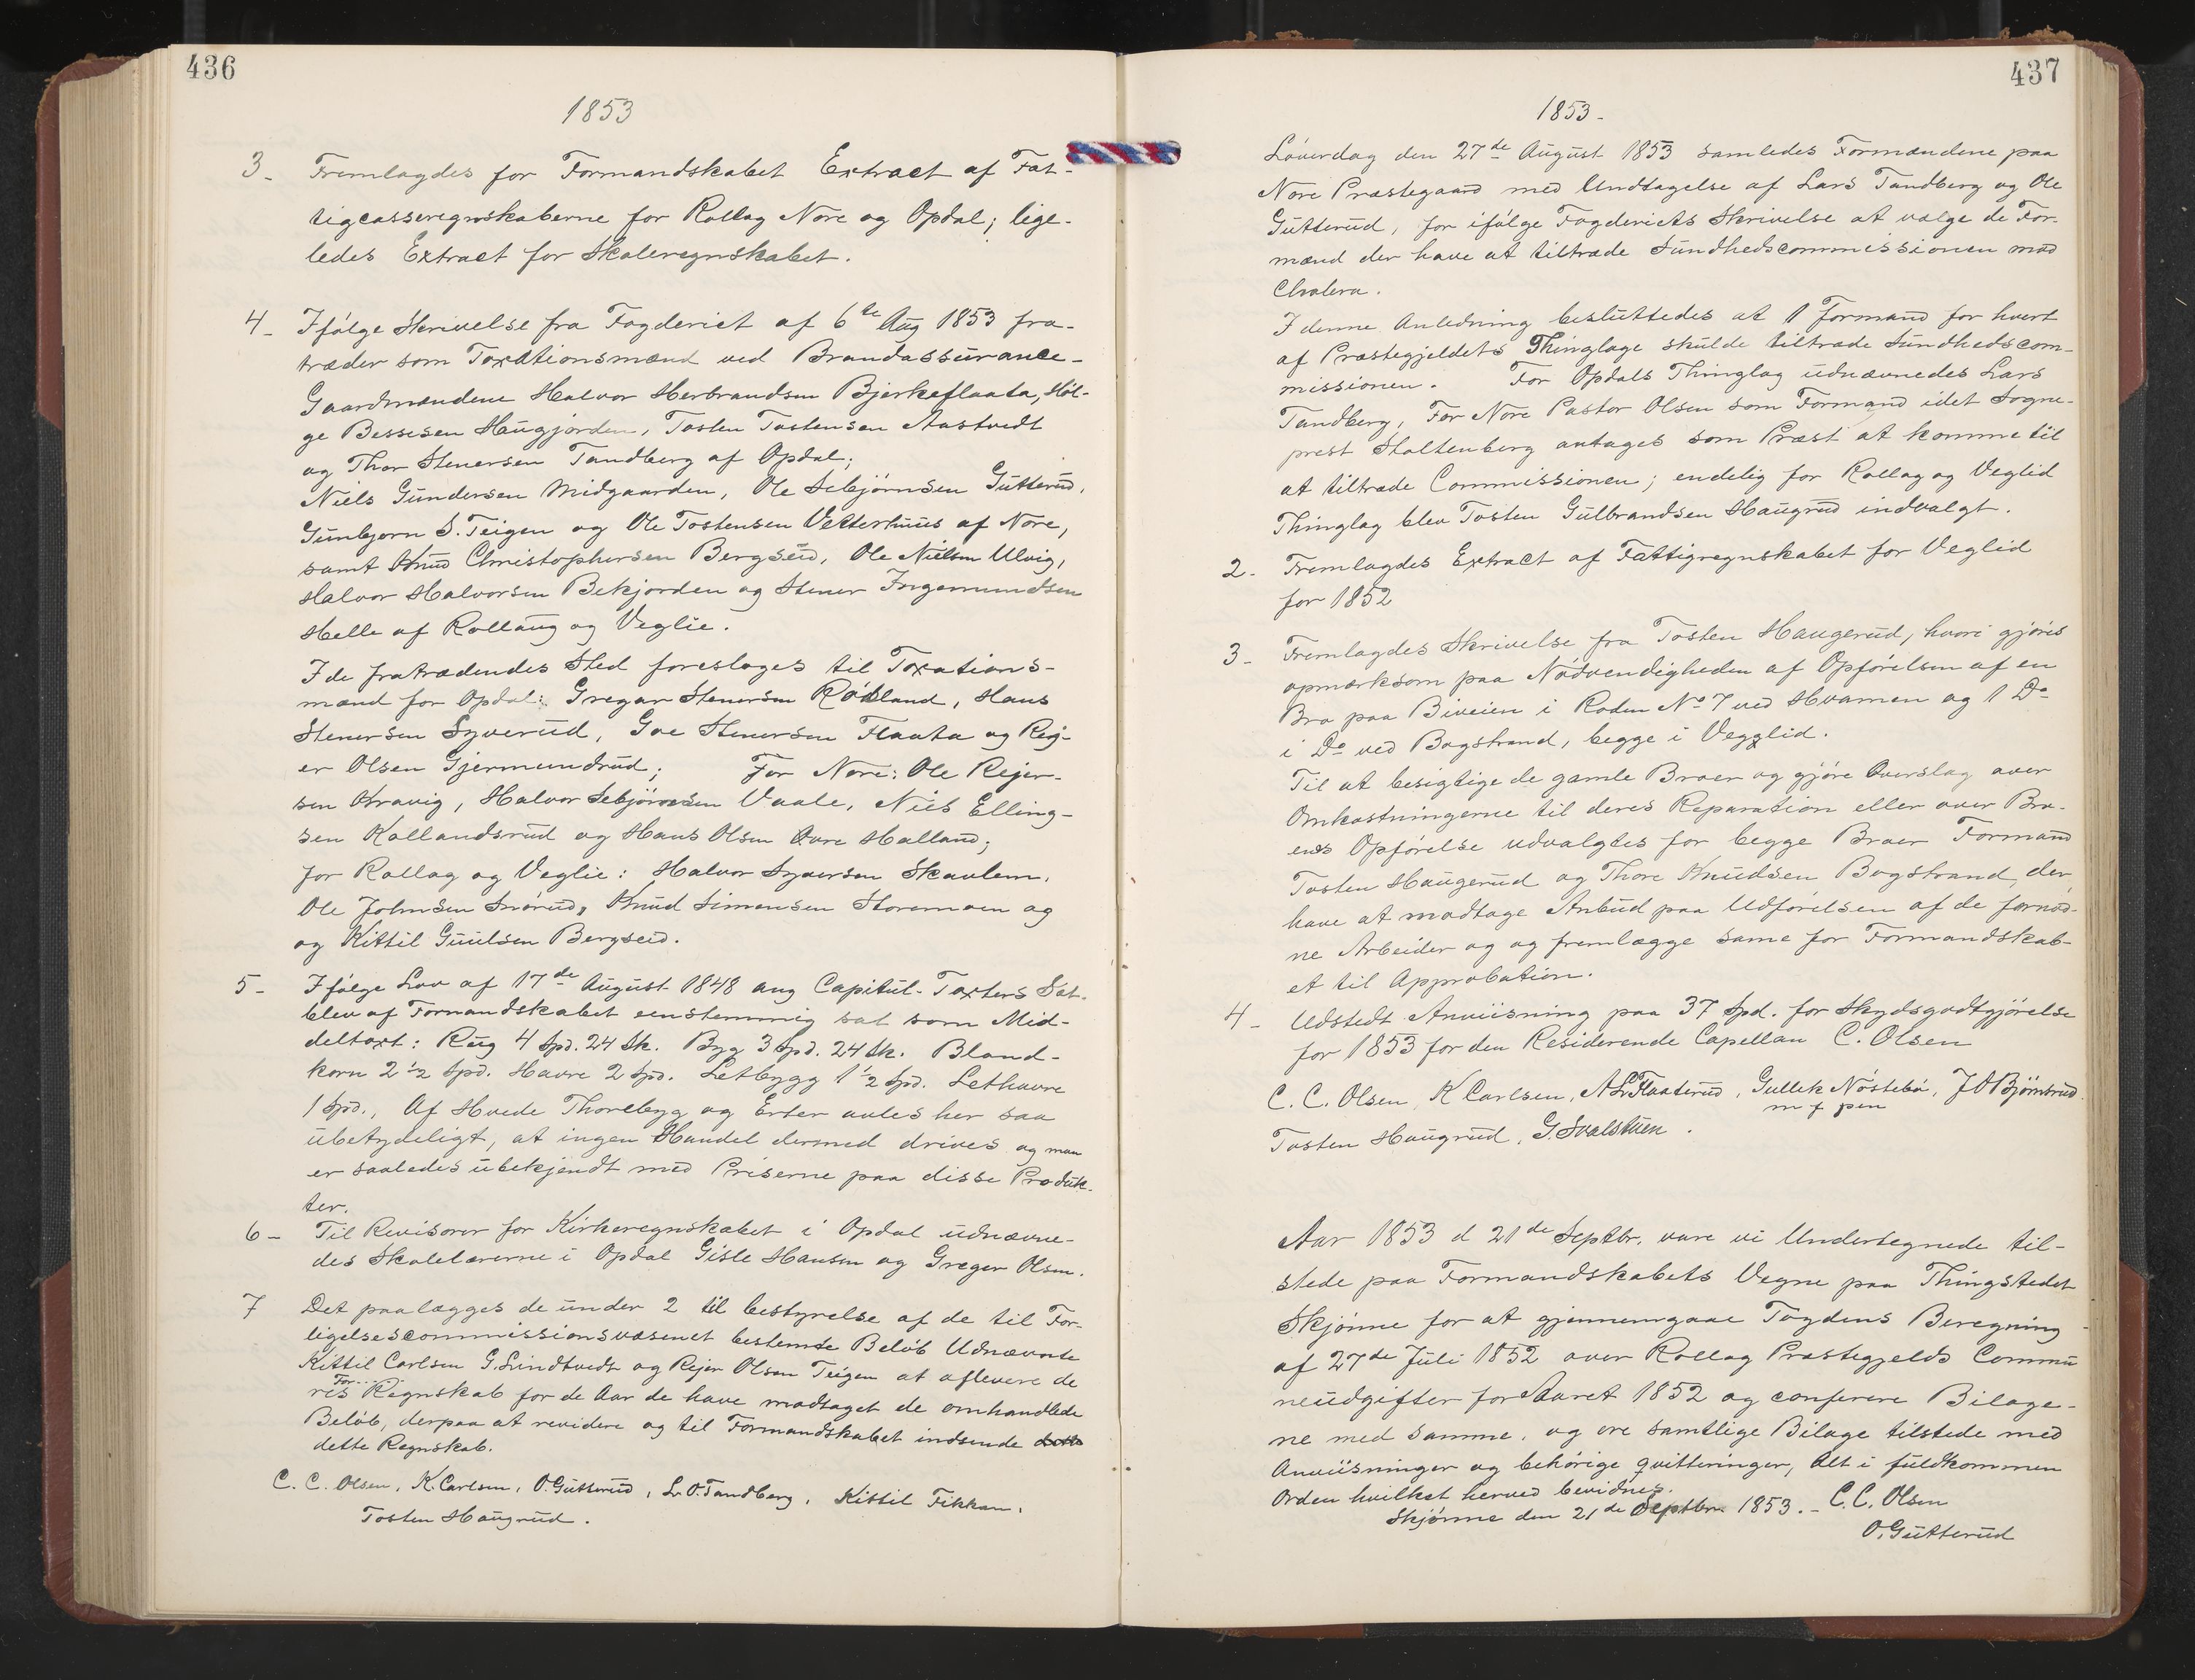 436
1853
3_ Fremlagdes for Formandskabet Extract af Fat-
tigcasseregnskaberne for Rollag Nore og Opdal; lige-
ledes Extract for Skoleregnskabet.
4_ Ifølge Skrivelse fra Fogderiet af 6te Aug 1853 fra-
træder som Taxationsmænd ved Brandassurance-
Gaardmændene Halvor Herbrandsen Bjerkeflaata, Høl-
ge Bessesen Haugjorden, Tosten Tostensen Aastvedt
og Thor Stenersen Tandberg af Opdal;
Niels Gundersen Midgaarden, Ole Sebjørnsen Gutterud,
Gunbjørn S. Teigen og Ole Tostensen Vetterhuus af Nore,
samt Knud Christophersen Bergseid, Ole Nielsen Ulvig,
Halvor Halvorsen Bekjorden og Stener Ingemundsen
Helle af Rollaug og Veglie.
I de fratrædendes Sted foresloges til Taxations-
mænd for Opdal: Gregar Stenersen Rødland, Hans
Stenersen Syverud, Goe Stenersen Flaata og Rej-
er Olsen Gjermundrud; For Nore: Ole Rejer-
sen Kravig, Halvor Sebjörnsen Vaale, Niels Elling-
sen Kollandsrud og Hans Olsen Øvre Halland;
for Rollag og Veglie: Halvor Syversen Skavlem,
Ole Johnsen Snørud, Knud Simensen Storemoen og
og Kittil Guulsen Bergseid.
5_ Ifølge Lov af 17de August 1848 ang Capitul-Taxters Sæt-
blev af Formandskabet eenstemmig sat som Mid-
deltaxt: Rug 4 Spd. 24 Sk. Byg 3 Spd. 24 Sk. Bland-
korn 2 1/2 Spd. Havre 2 Spd. Letbygg 1 1/2 Spd. Lethavre
1 Spd., Af Hvede Thorebyg og Erter avles her saa
ubetydeligt, at ingen Handel dermed drives og man
er saaledes ubekjendt med Priserne paa disse Produk-
ter.
6_ Til Revisorer for Kirkeregnskabet i Opdal udnævne-
des Skolelærerne i Opdal Gisle Hansen og Greger Olsen.
7 Det paalægges de under 2 til bestyrelse af de til For-
ligelsescommissionsvæsenet bestemte Beløb Udnævnte
Kittil Carlsen G. Lindtvedt og Rejer Olsen Teigen at aflevere de
For.....
res Regnskab for de Aar de have modtaget de omhandlede
Beløb, derpaa at revidere og til Formandskabet indsende dette
dette Regnskab.
C. C. Olsen, K. Carlsen, O. Gutterud, L. O. Tandberg, Kittil Fikkan,
Tosten Haugrud.
437
1853-
Løverdag den 27de August 1853 samledes Formændene paa
Nore Præstegaard med Undtagelse af Lars Tandberg og Ole
Gutterud, for ifølge Fogderiets Skrivelse at vælge de For-
mænd der have at tiltræde Sundhedscommissionen mod
Cholera.
I denne Anledning besluttedes at 1 Formand for hvert
af Præstegjeldets Thinglage skulde tiltræde Sundhedscom-
missionen. For Opdals Thinglag udnævnedes Lars
Tandberg, For Nore Pastor Olsen som Formand idet Sogne-
prest Stoltenberg antages som Præst at komme til
at tiltræde Commissionen; endelig for Rollag og Veglid
Thinglag blev Tosten Gulbrandsen Haugrud indvalgt.
2. Fremlagdes Extract af Fattigregnskabet for Veglid
for 1852
3_ Fremlagdes Skrivelse fra Tosten Haugerud, hvori gjøres
opmærksom paa Nødvendigheden af Opførelsen af en
Bro paa Biveien i Roden No 7 ved Hvamen og 1 Do
i Do ved Bogstrand, begge i Vegglid.
Til at besigtige de gamle Broer og gjøre Overslag over
Omkostningerne til deres Reparation eller over Bro-
ens Opførelse udvalgtes for begge Broer Formand
Tosten Haugerud og Thore Knudsen Bogstrand, der
have at modtage Anbud paa Udførelsen af de fornød-
ne Arbeider og og fremlægge same for Formandskab-
et til Approbation.
4_ Udstedt Anviisning paa 37 Spd. for Skydsgodtgjørelse
for 1853 for den Residerende Capellan C. Olsen
C. C. Olsen, K Carlsen, A L Flaaterud, Gullek Nøstebø, J O Bjørnsrud
m f pen
Tosten Haugrud, G. Svalstuen.
Aar 1853 d 21de Septbr. vare vi Undertegnede til-
stede paa Formandskabets Vegne paa Thingstedet
Skjønne for at gjennemgaae Fogdens Beregning
af 27de Juli 1852 over Rollag Præstegjelds Commu
neudgifter for Aaret 1852 og conferere Bilage-
ne med samme, og ere samtlige Bilage tilstede med
Anviisninger og behørige qvitteringer, Alt i fuldkommen
Orden hvilket herved bevidnes.
Skjønne den 21de Septbr. 1853.- C. C. Olsen
O. Gutterud